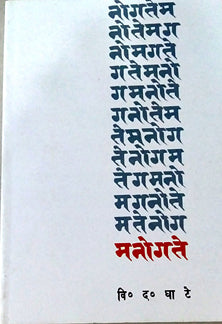 नोगतेम
नोतेमग
नोमगते
गतेमनो
गमनोते
गनोतेम
तेमनोग
तेनोगम
तेगमनो
मगनोते
मतेनोग
मनोगते
वि० द० घाटे